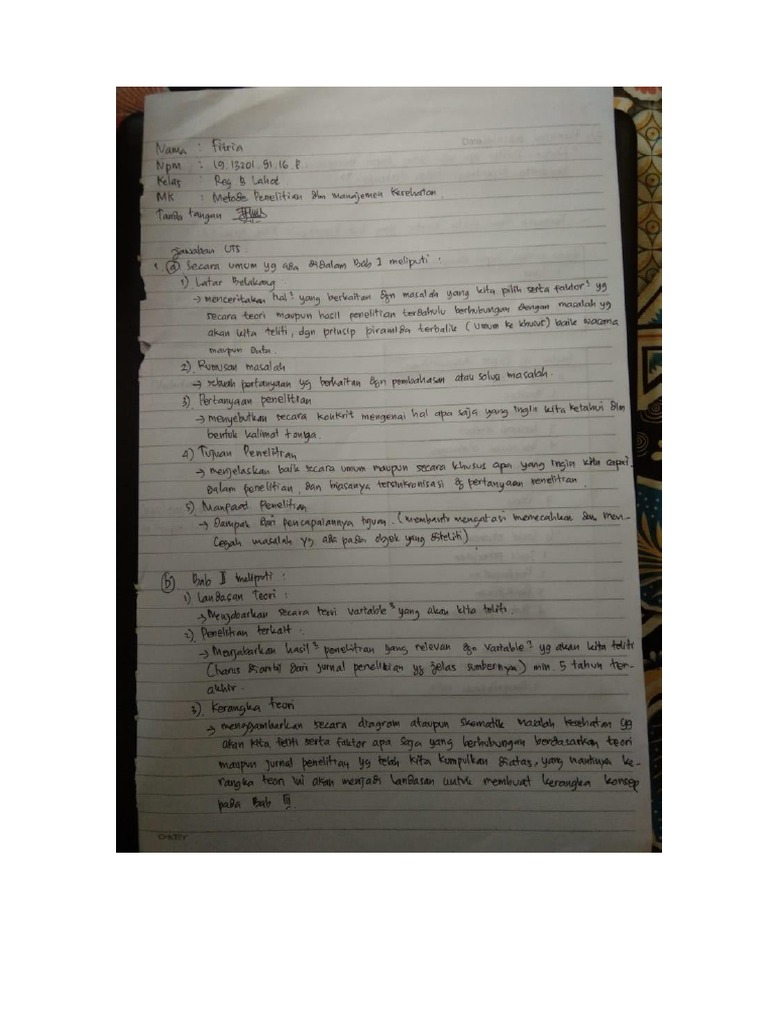 Nama : Fitria
Npm : 19.13201.51.16.P
Kelas : Reg B Lahat
MK : Metode Penelitian dlm manajemen Kesehatan
Tanda tangan
Jawaban UTS
1. (a) Secara umum yg ada didalam Bab I meliputi :
1) Latar Belakang
→ menceritakan hal² yang berkaitan dgn masalah yang kita pilih serta faktor² yg
secara teori maupun hasil penelitian terdahulu berhubungan dengan masalah yg
akan kita teliti, dgn prinsip piramida terbalik (umum ke khusus) baik wacana
maupun data.
2) Rumusan masalah
→ sebuah pertanyaan yg berkaitan dgn pembahasan atau solusi masalah.
3) Pertanyaan penelitian
→ menyebutkan secara konkrit mengenai hal apa saja yang ingin kita ketahui dlm
bentuk kalimat tanya.
4) Tujuan Penelitian
→ menjelaskan baik secara umum maupun secara khusus apa yang ingin kita capai
dalam penelitian, dan biasanya tersinkronisasi dg pertanyaan penelitian.
5) Manfaat Penelitian
→ Dampak dari pencapaiannya tujuan. (membantu mengatasi memecahkan dan men-
cegah masalah yg ada pada objek yang diteliti)
(b) Bab II meliputi :
1) Landasan Teori :
→ Menjabarkan secara teori variable² yang akan kita teliti.
2) Penelitian terkait :
→ Menjabarkan hasil² penelitian yang relevan dgn variable² yg akan kita teliti
(harus diambil dari jurnal penelitian yg jelas sumbernya) min. 5 tahun ter-
akhir.
3) Kerangka teori
→ menggambarkan secara diagram ataupun skematik masalah kesehatan yg
akan kita teliti serta faktor apa saja yang berhubungan berdasarkan teori
maupun jurnal penelitian yg telah kita kumpulkan diatas, yang nantinya ke-
rangka teori ini akan menjadi landasan untuk membuat kerangka konsep
pada Bab III.